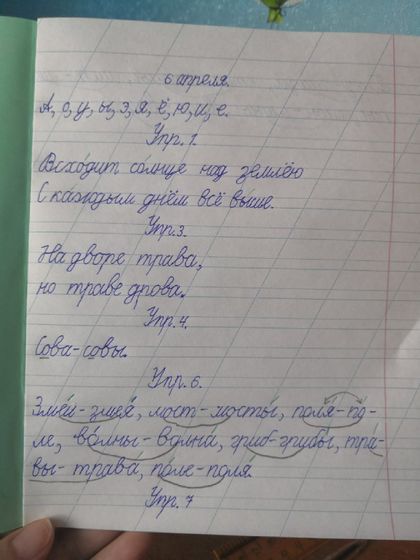 6 апреля.
А, о, у, ы, э, я, ё, ю, и, е.
Упр. 1.
Всходит солнце над землёю
С каждым днём всё выше.
Упр. 3.
На дворе трава,
но траве дрова.
Упр. 4.
Сова - совы.
Упр. 6.
Змеи - змея, мост - мосты, поля - по-
ле, волны - волна, гриб - грибы, тра-
вы - трава, поле - поля.
Упр. 7